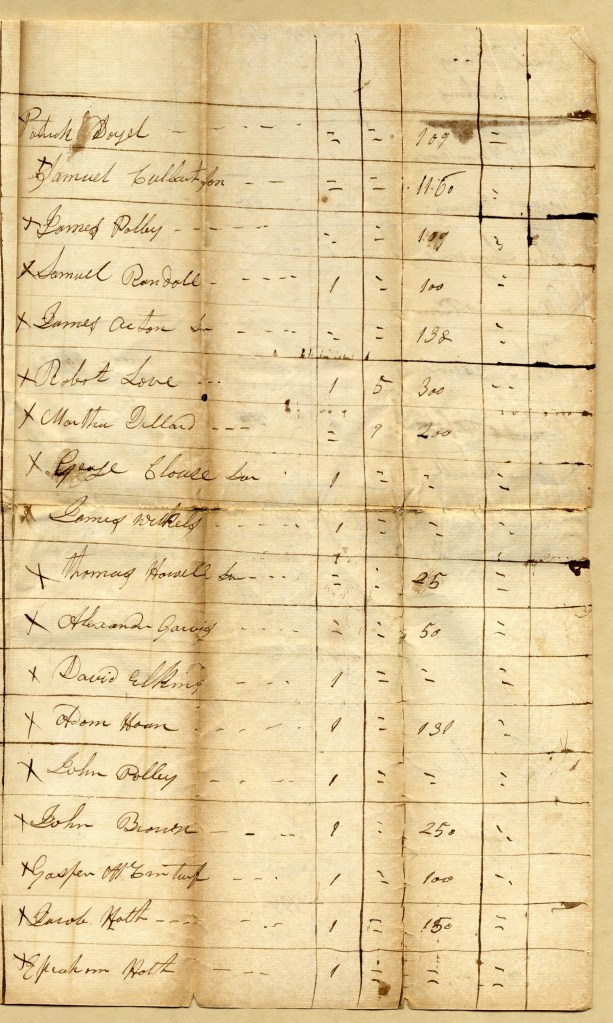 Patrick Boyd - - - - = = 109 =
X Samuel Culbertson - - = = 1160 =
X James Polley - - - - - = 109 =
X Samuel Randoll - - - - 1 - 100 =
X James Acton Sr - - - - - = 138 =
X Robert Love - - - 1 5 300 - -
X Martha Dillard - - - = 9 200
X George Clouse Snr - 1 = = =
James - - - - 1 = = =
X Thomas Howell Sr - - - = = 25 =
X Alexander - - - - = = 50 =
X David Elkins - - - 1 = = =
X Adam Haun - - - - 1 = 131 =
X John Polley - - - - 1 = = =
X John Brown - - - - 1 = 250 =
X Gasper - - - 1 = 100 =
X Jacob Hoth - - - - - 1 = 150 =
X Ephraham Hoth - - - 1 = = =